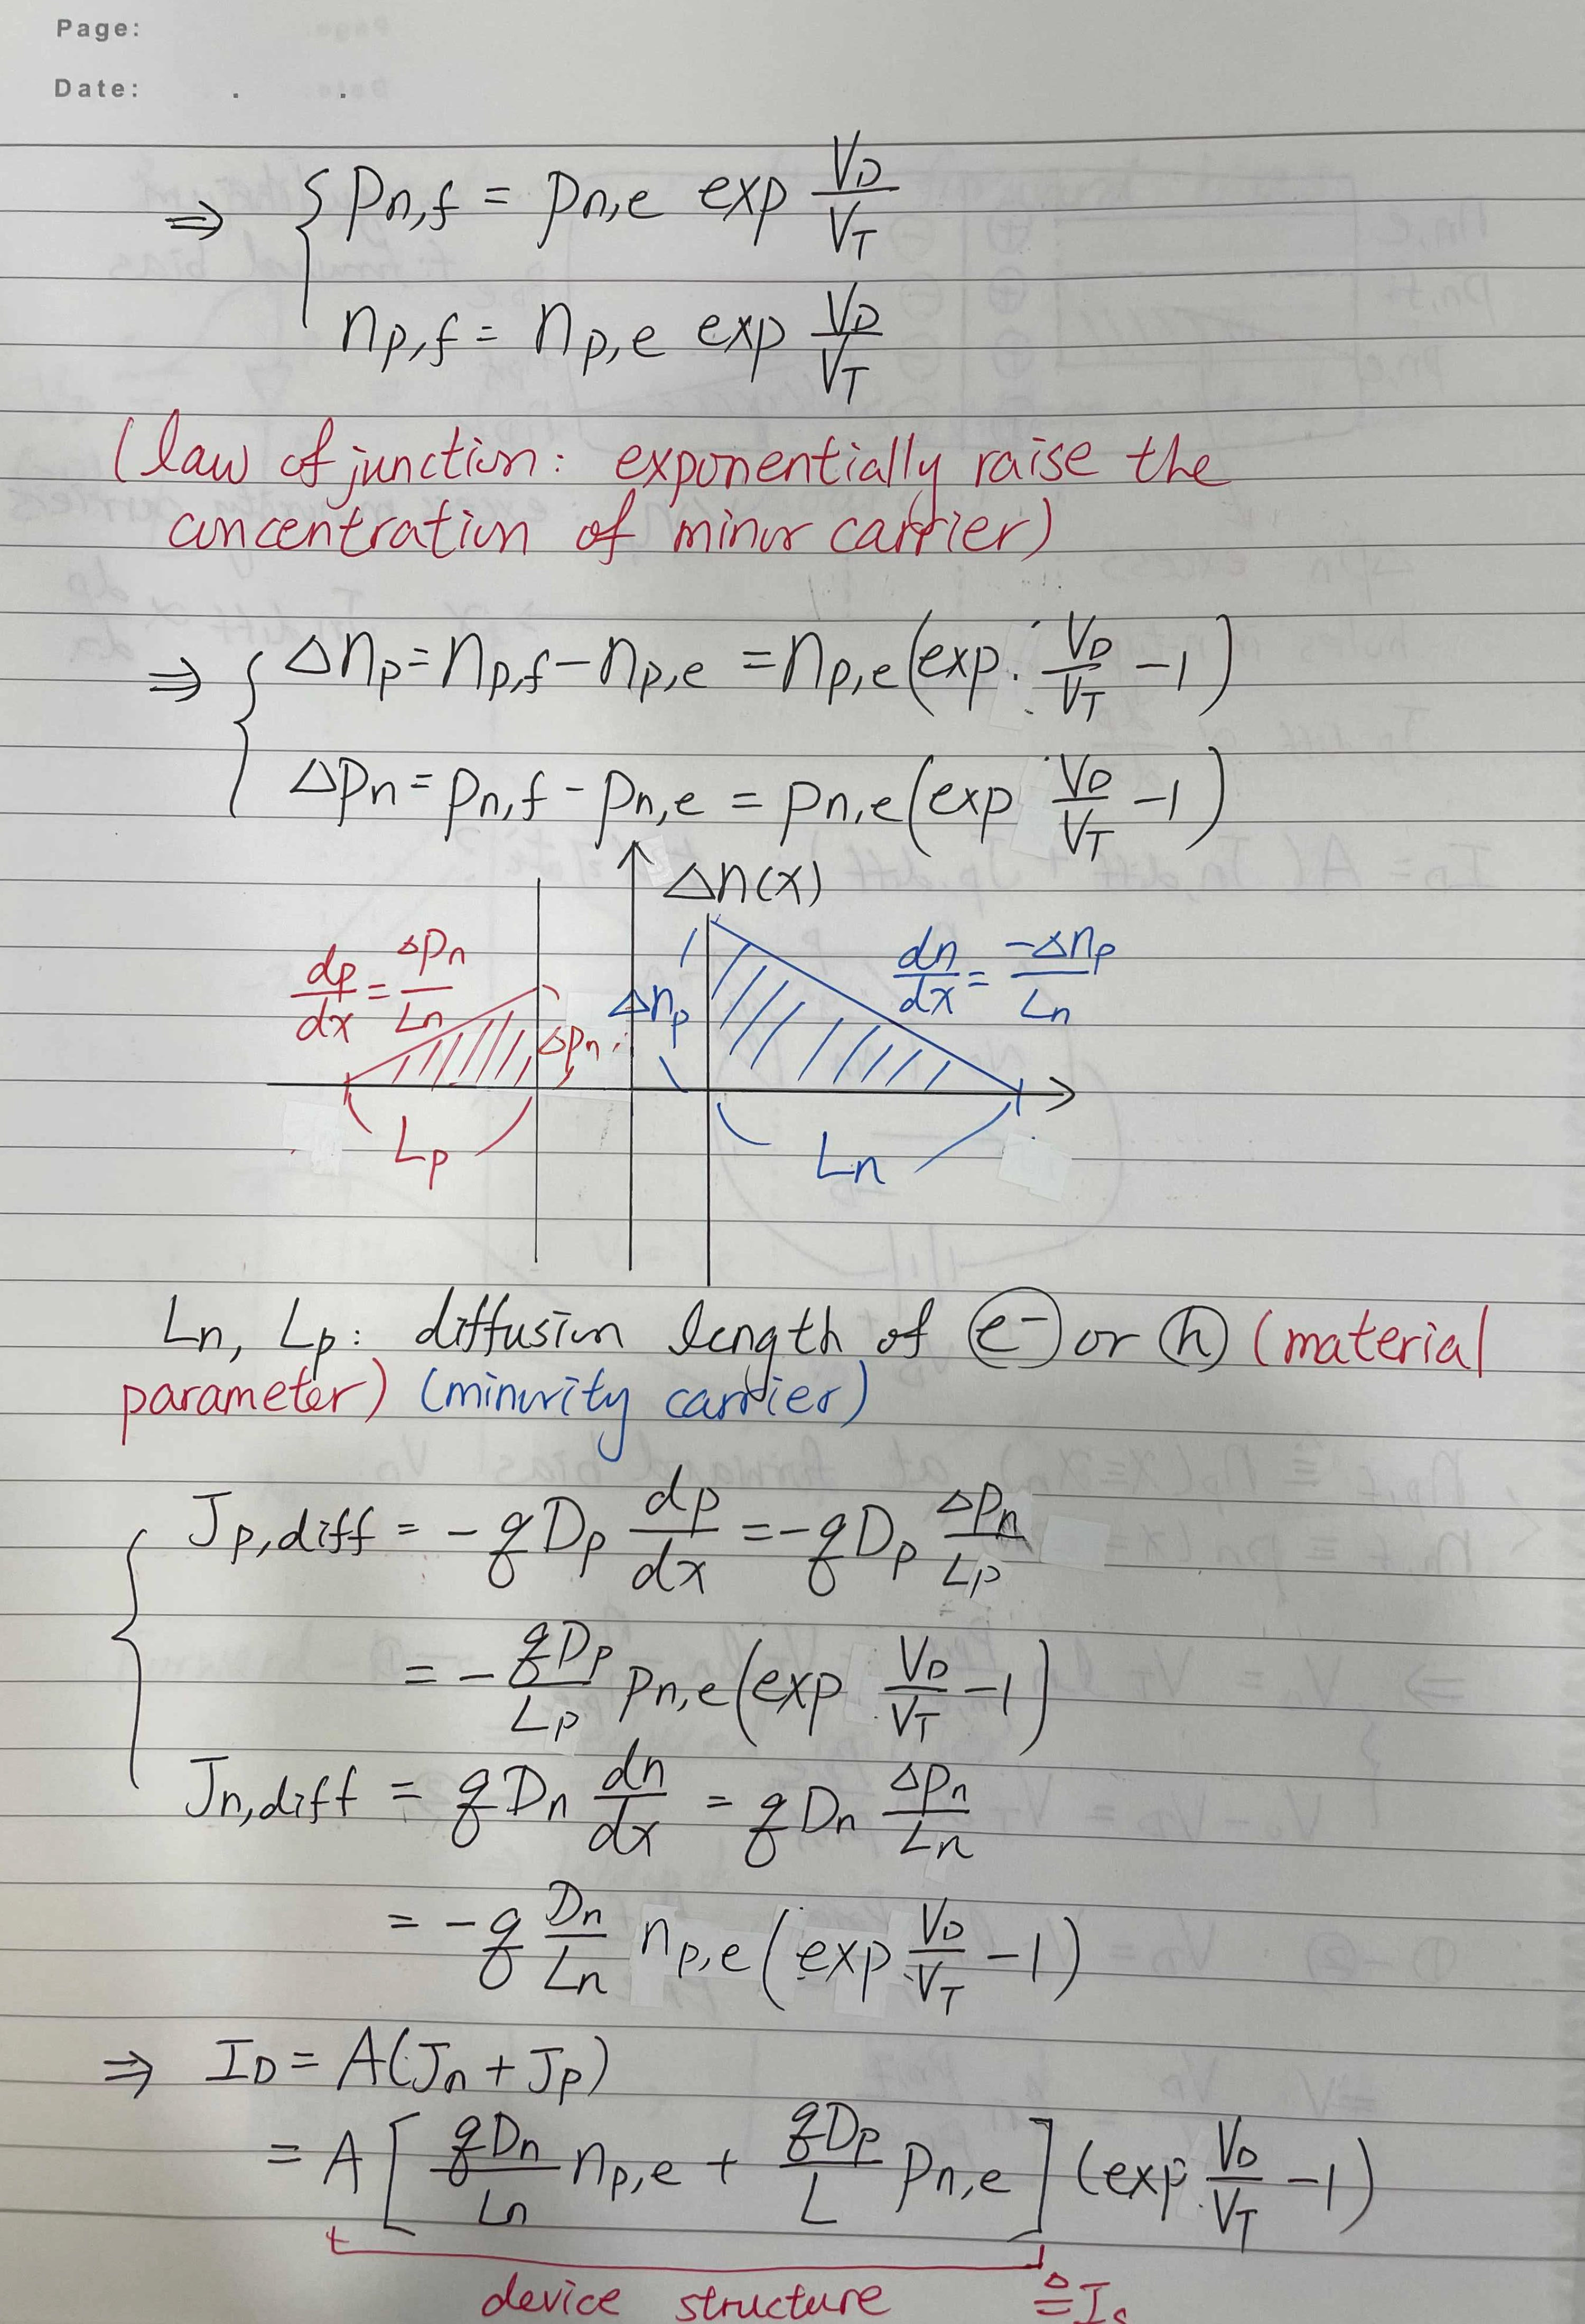 Page:
Date: . .
⇒ { pn,f = pn,e exp VD/VT
np,f = np,e exp VD/VT
(law of junction: exponentially raise the
concentration of minor carrier)
⇒ { Δnp = np,f − np,e = np,e (exp VD/VT − 1)
Δpn = pn,f − pn,e = pn,e (exp VD/VT − 1)
Δn(x)
dp/dx = Δpn/Ln
dn/dx = −Δnp/Ln
Δpn
Δnp
Lp
Ln
Ln, Lp: diffusion length of e− or h (material
parameter) (minority carrier)
{ Jp,diff = −qDp dp/dx = −qDp Δpn/Lp
= −qDp/Lp pn,e (exp VD/VT − 1)
Jn,diff = qDn dn/dx = qDn Δpn/Ln
= −q Dn/Ln np,e (exp VD/VT − 1)
⇒ ID = A(Jn + Jp)
= A[qDn/Ln np,e + qDp/L pn,e] (exp VD/VT − 1)
device structure ≜ Is